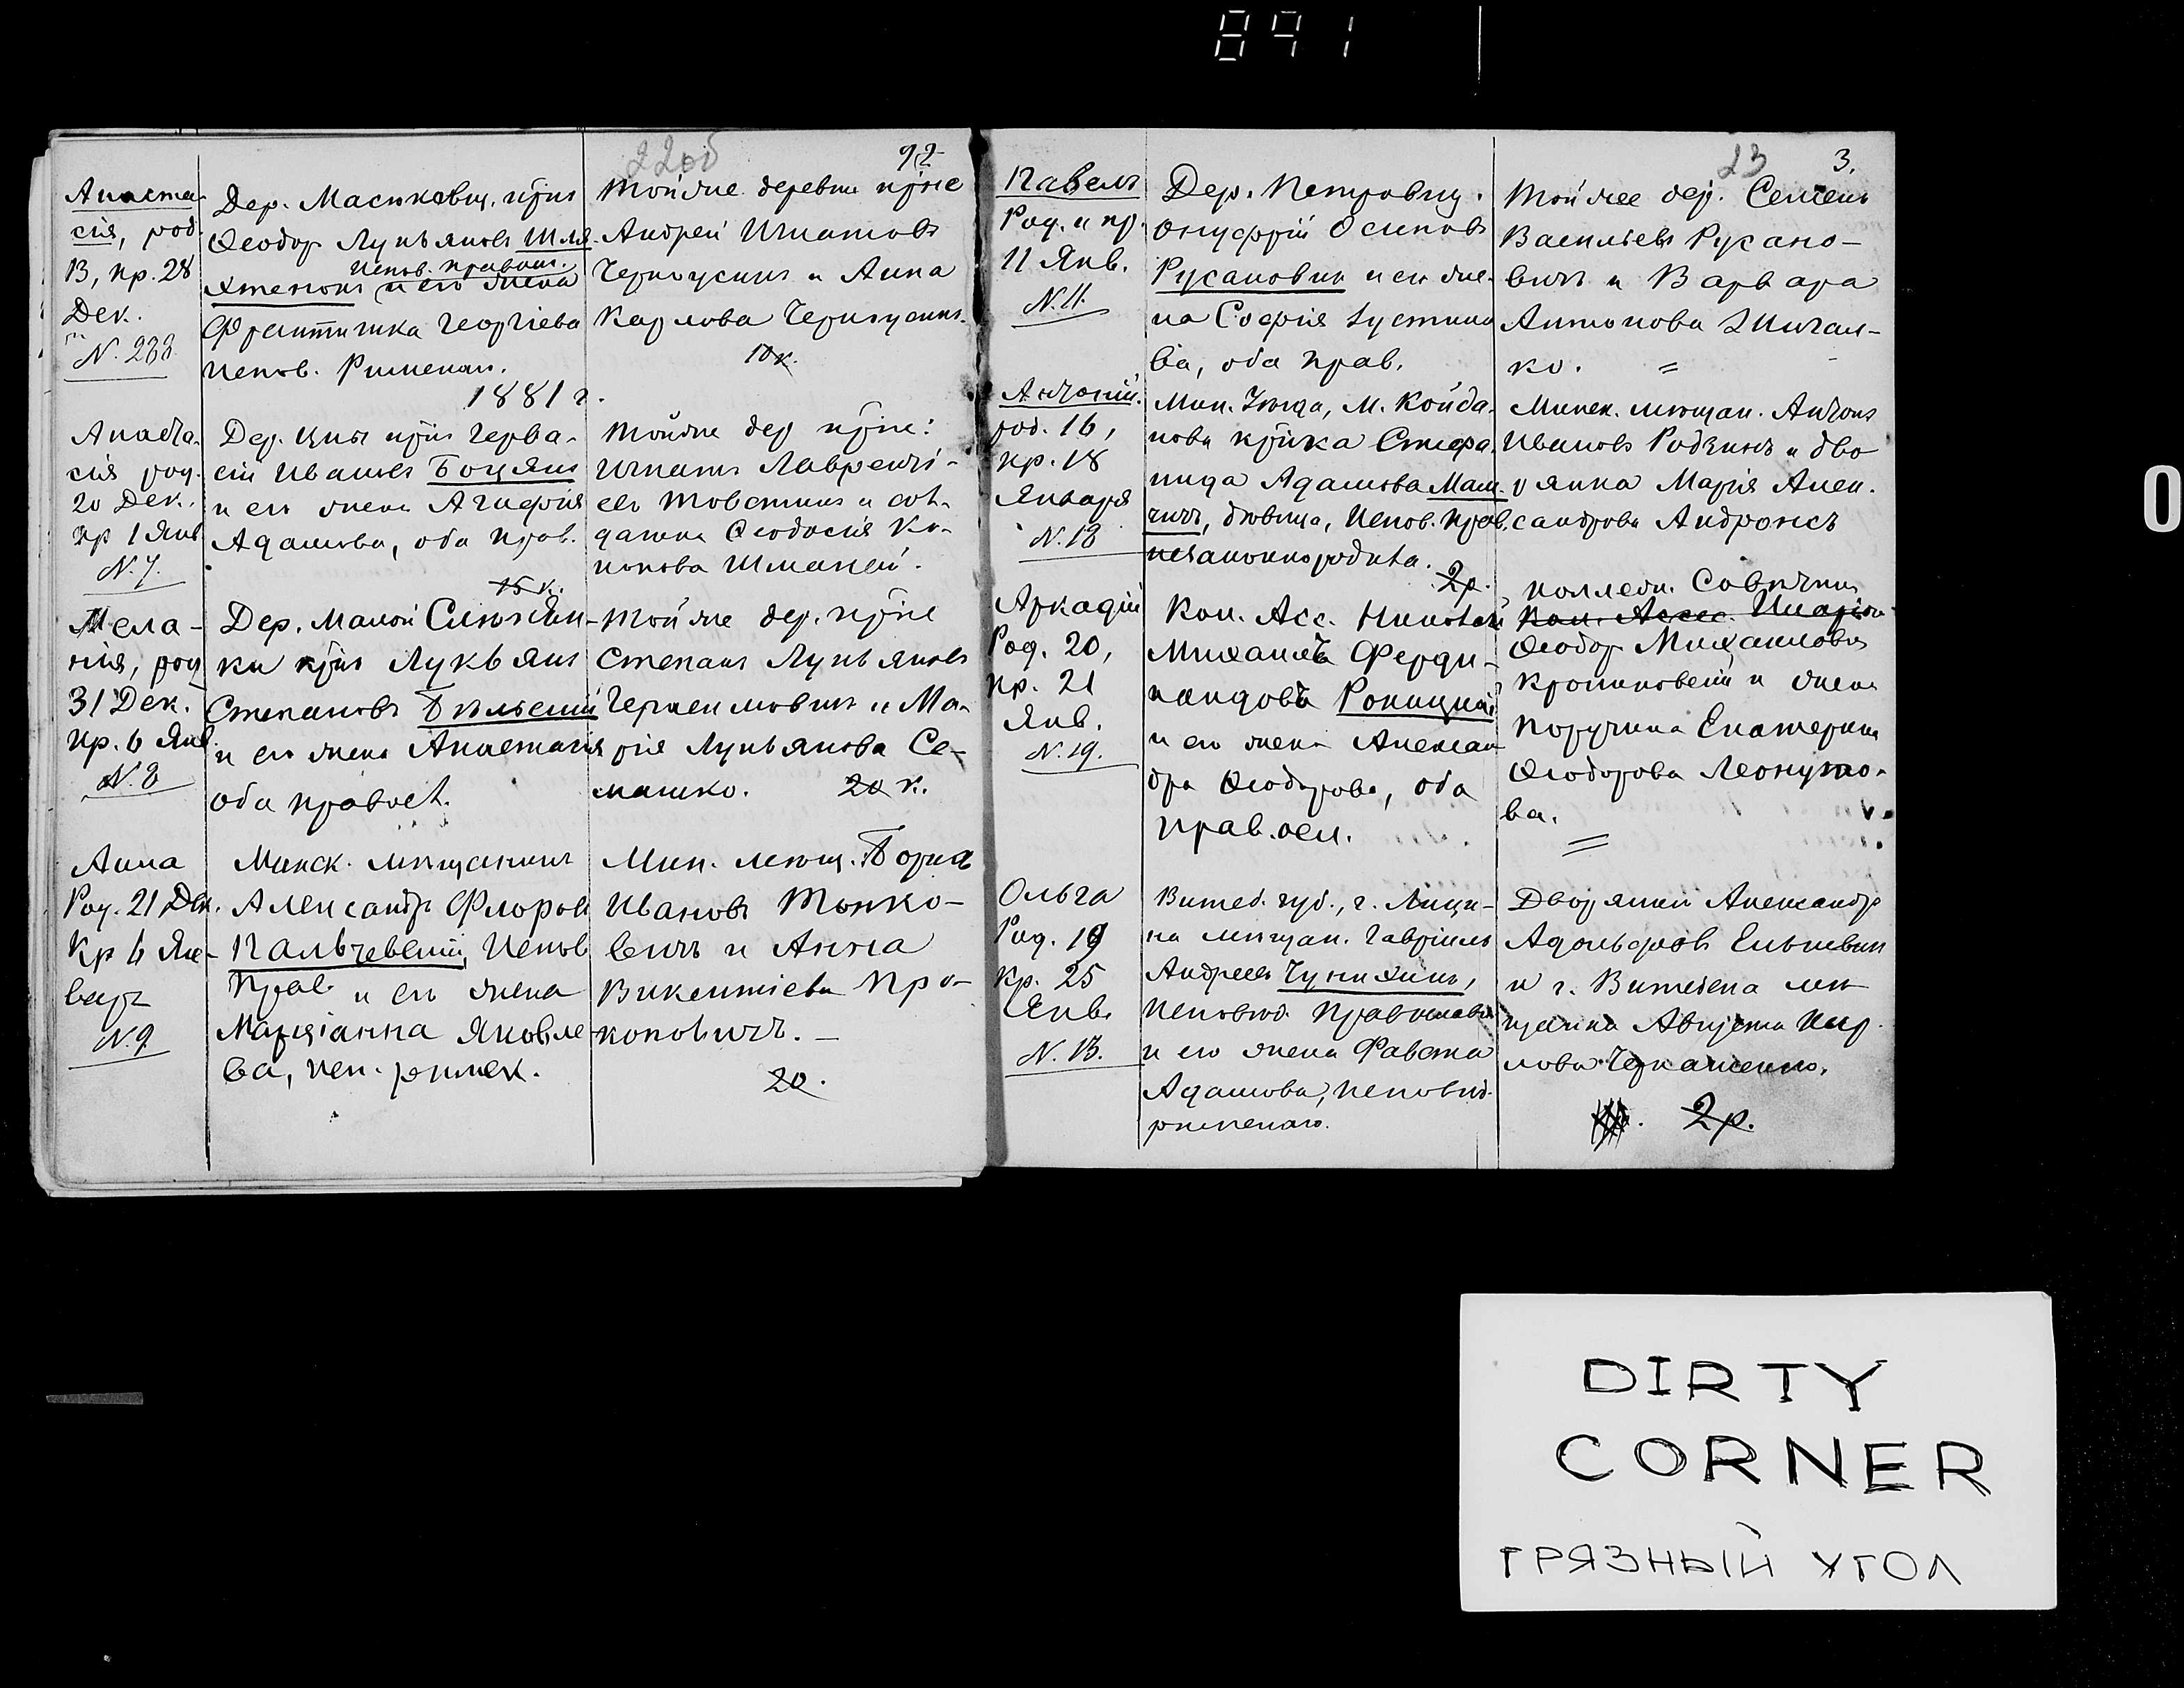 891
22об
92
Анаста-
сія, род.
13, кр. 28
Дек.
N. 288
Дер. Масюковщ. крѣн
Ѳеодор Лукьяновъ Шля-
испов. правосл.
хтенокъ и его жена
Франтишка Георгіева
испов. Римскаго.
Той же деревни крѣне
Андрей Игнатовъ
и Анна
Карлова
10 к.
1881 г.
Анаста-
сія род.
20 Дек.
кр 1 Янв
N. 7.
Дер. Цны крѣн Герва-
сій Ивановъ Боцянъ
и его жена Агафія
Адамова, оба прав.
15 к.
Той же дер крѣне:
Игнатъ Лавренті-
евъ Товстикъ и сол-
датка Ѳеодосія Ко-
нонова
Мела-
нія, род
31 Дек.
кр. 6 Янв.
N. 8
Дер. Малой Слепян-
ки крѣн Лукьянъ
Степановъ Бѣльскій
и его жена Анастасія
оба правосл.
Той же дер. крѣне
Степанъ Лукьяновъ
и Ма-
рія Лукьянова Се-
машко. 20 к.
Анна
Род. 21 Дек.
Кр 6 Ян-
варя
N. 9
Минск. мѣщанинъ
Александръ Флоровъ
Пальчевскій, Испов
Прав. и его жена
Маріанна Яковле-
ва, исп. римск.
Мин. мѣщ. Борисъ
Ивановъ Тонко-
вичъ и Анна
Викентіева Про-
коповичъ.
20.
23
3.
Павелъ
Род. и кр.
11 Янв.
N. 11.
Дер. Петровщ.
Онуфрій Осиповъ
Русановичъ и его же-
на Софія Іустино-
ва, оба прав.
Той же дер. Семенъ
Васильевъ Русано-
вичъ и Варвара
Антонова
ко. =
Антоній.
род. 16,
кр. 18
Января
N. 18
Мин. Уѣзда, М. Койда-
нова крѣнка Стефа-
нида Адамова Мац-
кевичъ, дѣвица, Испов. Прав.
незаконнородила.
2 р.
Минск. мѣщан. Антонъ
Ивановъ Родзинъ и дво-
рянка Марія Алек-
сандрова Андронсъ
Аркадій
Род. 20,
кр. 21
Янв.
N. 19.
Кол. Асс. Николай
Михаилъ Ферди-
нандовъ Роницкій
и его жена Алексан-
дра Ѳеодорова, оба
прав. осл.
коллежск. Совѣтникъ
Кол. Ассес. Иларіон
Ѳеодор Михаиловъ
и жена
поручика Екатерина
Ѳеодорова Леонуто-
ва.
=
Ольга
Род. 19
кр. 25
Янв.
N. 13.
Витеб. губ., г. Люци-
на мѣщан. Гавріилъ
Андреевъ Чунихинъ,
Исповѣд. Православн
и его жена Фавста
Адамова, исповѣд.
римскаго.
Дворянинъ Александръ
Адольфовъ
и г. Витебска мѣ-
щанка Августа Кар-
лова Черкашенко.
2 р.
DIRTY
CORNER
ГРЯЗНЫЙ УГОЛ
0